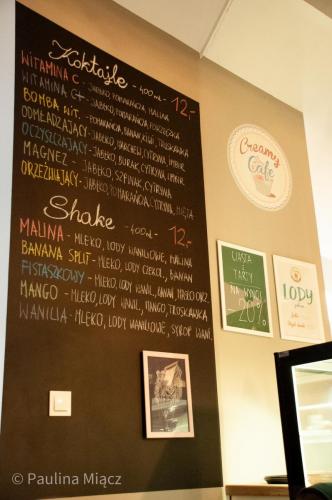 Koktajle - 400ml - 12.-
WITAMINA C - JABŁKO, POMARAŃCZA, MALINA
WITAMINA C+ - JABŁKO, POMARAŃCZA, PORZECZKA
BOMBA WIT. - POMARAŃCZA, BANAN, KIWI, TRUSKAWKA
ODMŁADZAJĄCY - JABŁKO, MARCHEW, CYTRYNA, IMBIR
OCZYSZCZAJĄCY - JABŁKO, BURAK, CYTRYNA, IMBIR
MAGNEZ - JABŁKO, SZPINAK, CYTRYNA
ORZEŹWIAJĄCY - JABŁKO, POMARAŃCZA, CYTRYNA, MIĘTA
Shake - 400ml - 12.-
MALINA - MLEKO, LODY WANILIOWE, MALINA
BANANA SPLIT - MLEKO, LODY CZEKOL., BANAN
FISTASZKOWY - MLEKO, LODY WANIL., BANAN, MASŁO ORZ.
MANGO - MLEKO, LODY WANIL., MANGO, TRUSKAWKA
WANILIA - MLEKO, LODY WANILIOWE, SYROP WANIL.
Creamy
Cafe
CIASTA
I
TARTY
NA WYNOS
20%
LODY
© Paulina Miącz